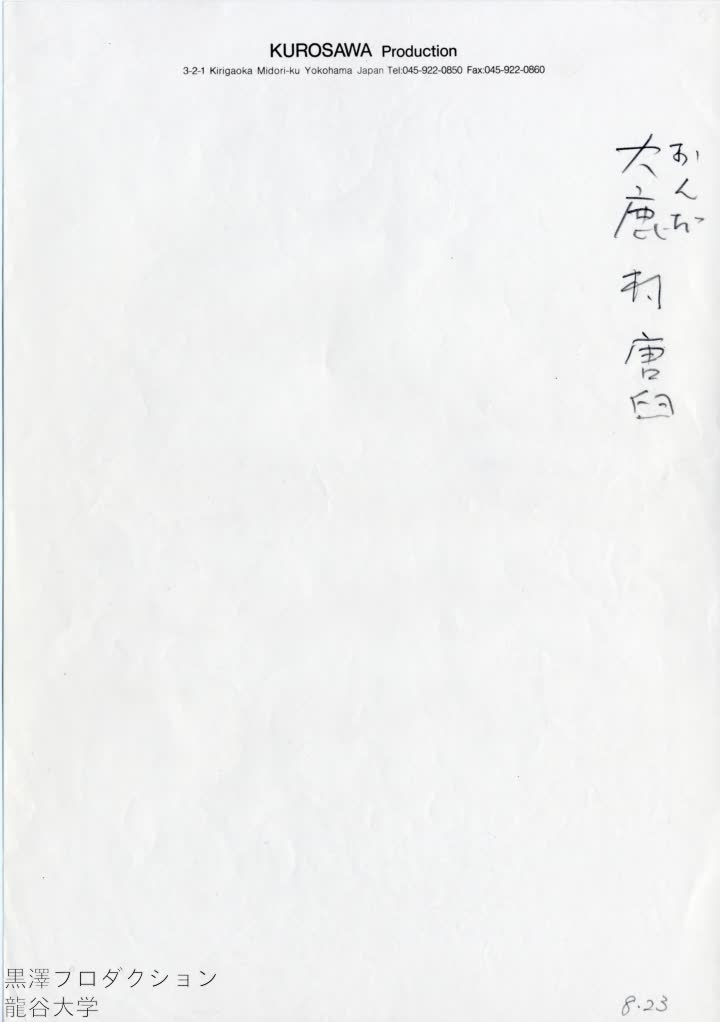 KUROSAWA Production
3-2-1 Kirigaoka Midori-ku Yokohama Japan Tel:045-922-0850 Fax:045-922-0860
おんだ
大鹿村唐臼
8.23
黒澤プロダクション
龍谷大学